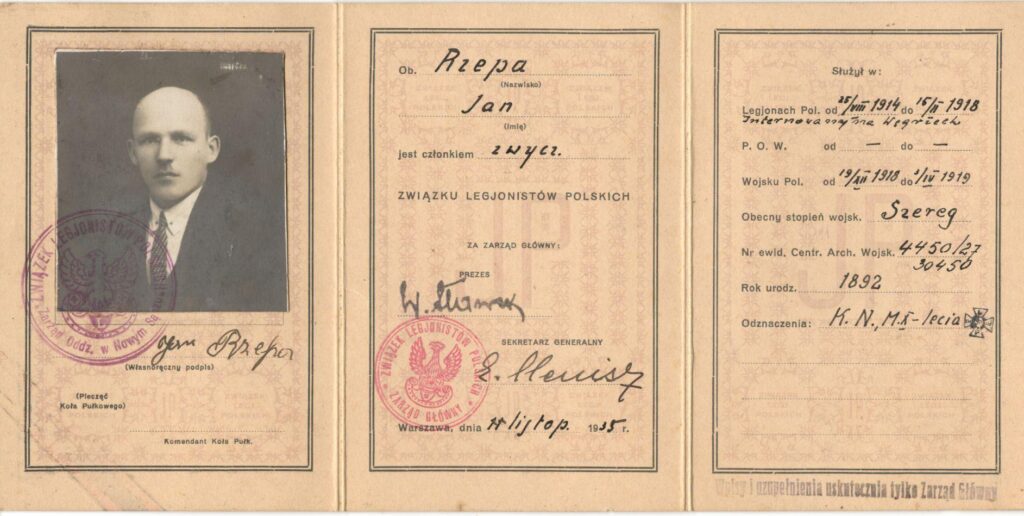 ZWIĄZEK LEGJONISTÓW POLSKICH
Zarząd Oddz. w Nowym Są
Jan Rzepa
(Własnoręczny podpis)
(Pieczęć
Koła Pułkowego)
Komendant Koła Pułk.
Ob. Rzepa
(Nazwisko)
Jan
(Imię)
jest członkiem zwycz.
ZWIĄZKU LEGJONISTÓW POLSKICH
ZA ZARZĄD GŁÓWNY:
PREZES
W. Sławek
SEKRETARZ GENERALNY
ZWIĄZEK LEGJONISTÓW POLSKICH
ZARZĄD GŁÓWNY
Warszawa, dnia listop. 1935 r.
Służył w:
Legjonach Pol. od 25/VIII 1914 do 15/II 1918
Internowany na Węgrzech
P. O. W. od — do —
Wojsku Pol. od 19/XII 1918 do 1/IV 1919
Obecny stopień wojsk. Szereg
Nr ewid. Centr. Arch. Wojsk. 4450/27
30450
Rok urodz. 1892
Odznaczenia: K. N., M. X-lecia
Wpisy i uzupełnienia uskutecznia tylko Zarząd Główny